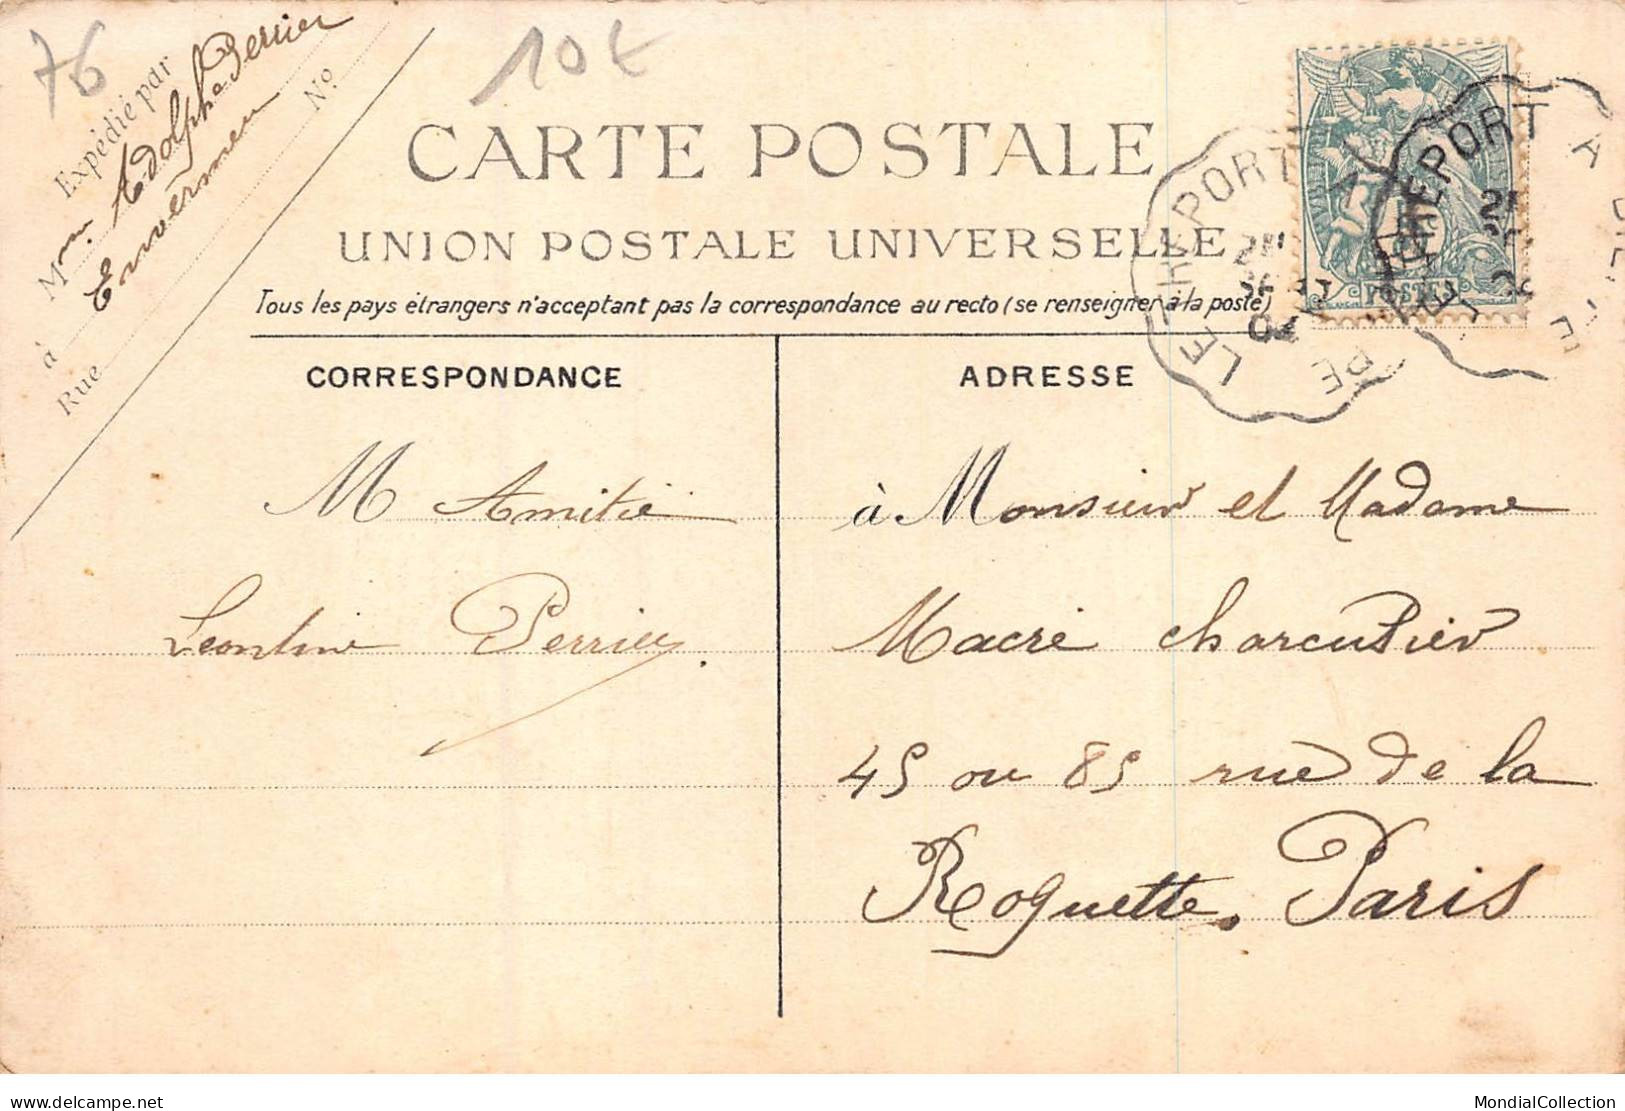 76
10€
Expédié par
Mme Adolphe Perrier
à Envermeu
Rue
No
CARTE POSTALE
UNION POSTALE UNIVERSELLE
Tous les pays étrangers n'acceptant pas la correspondance au recto (se renseigner à la poste)
CORRESPONDANCE
ADRESSE
LE TREPORT A
LE TREPORT A
POSTES
M Amitié
Leontine Perrier
à Monsieur et Madame
Macré charcutier
45 ou 85 rue de la
Roquette. Paris
delcampe.net
MondialCollection